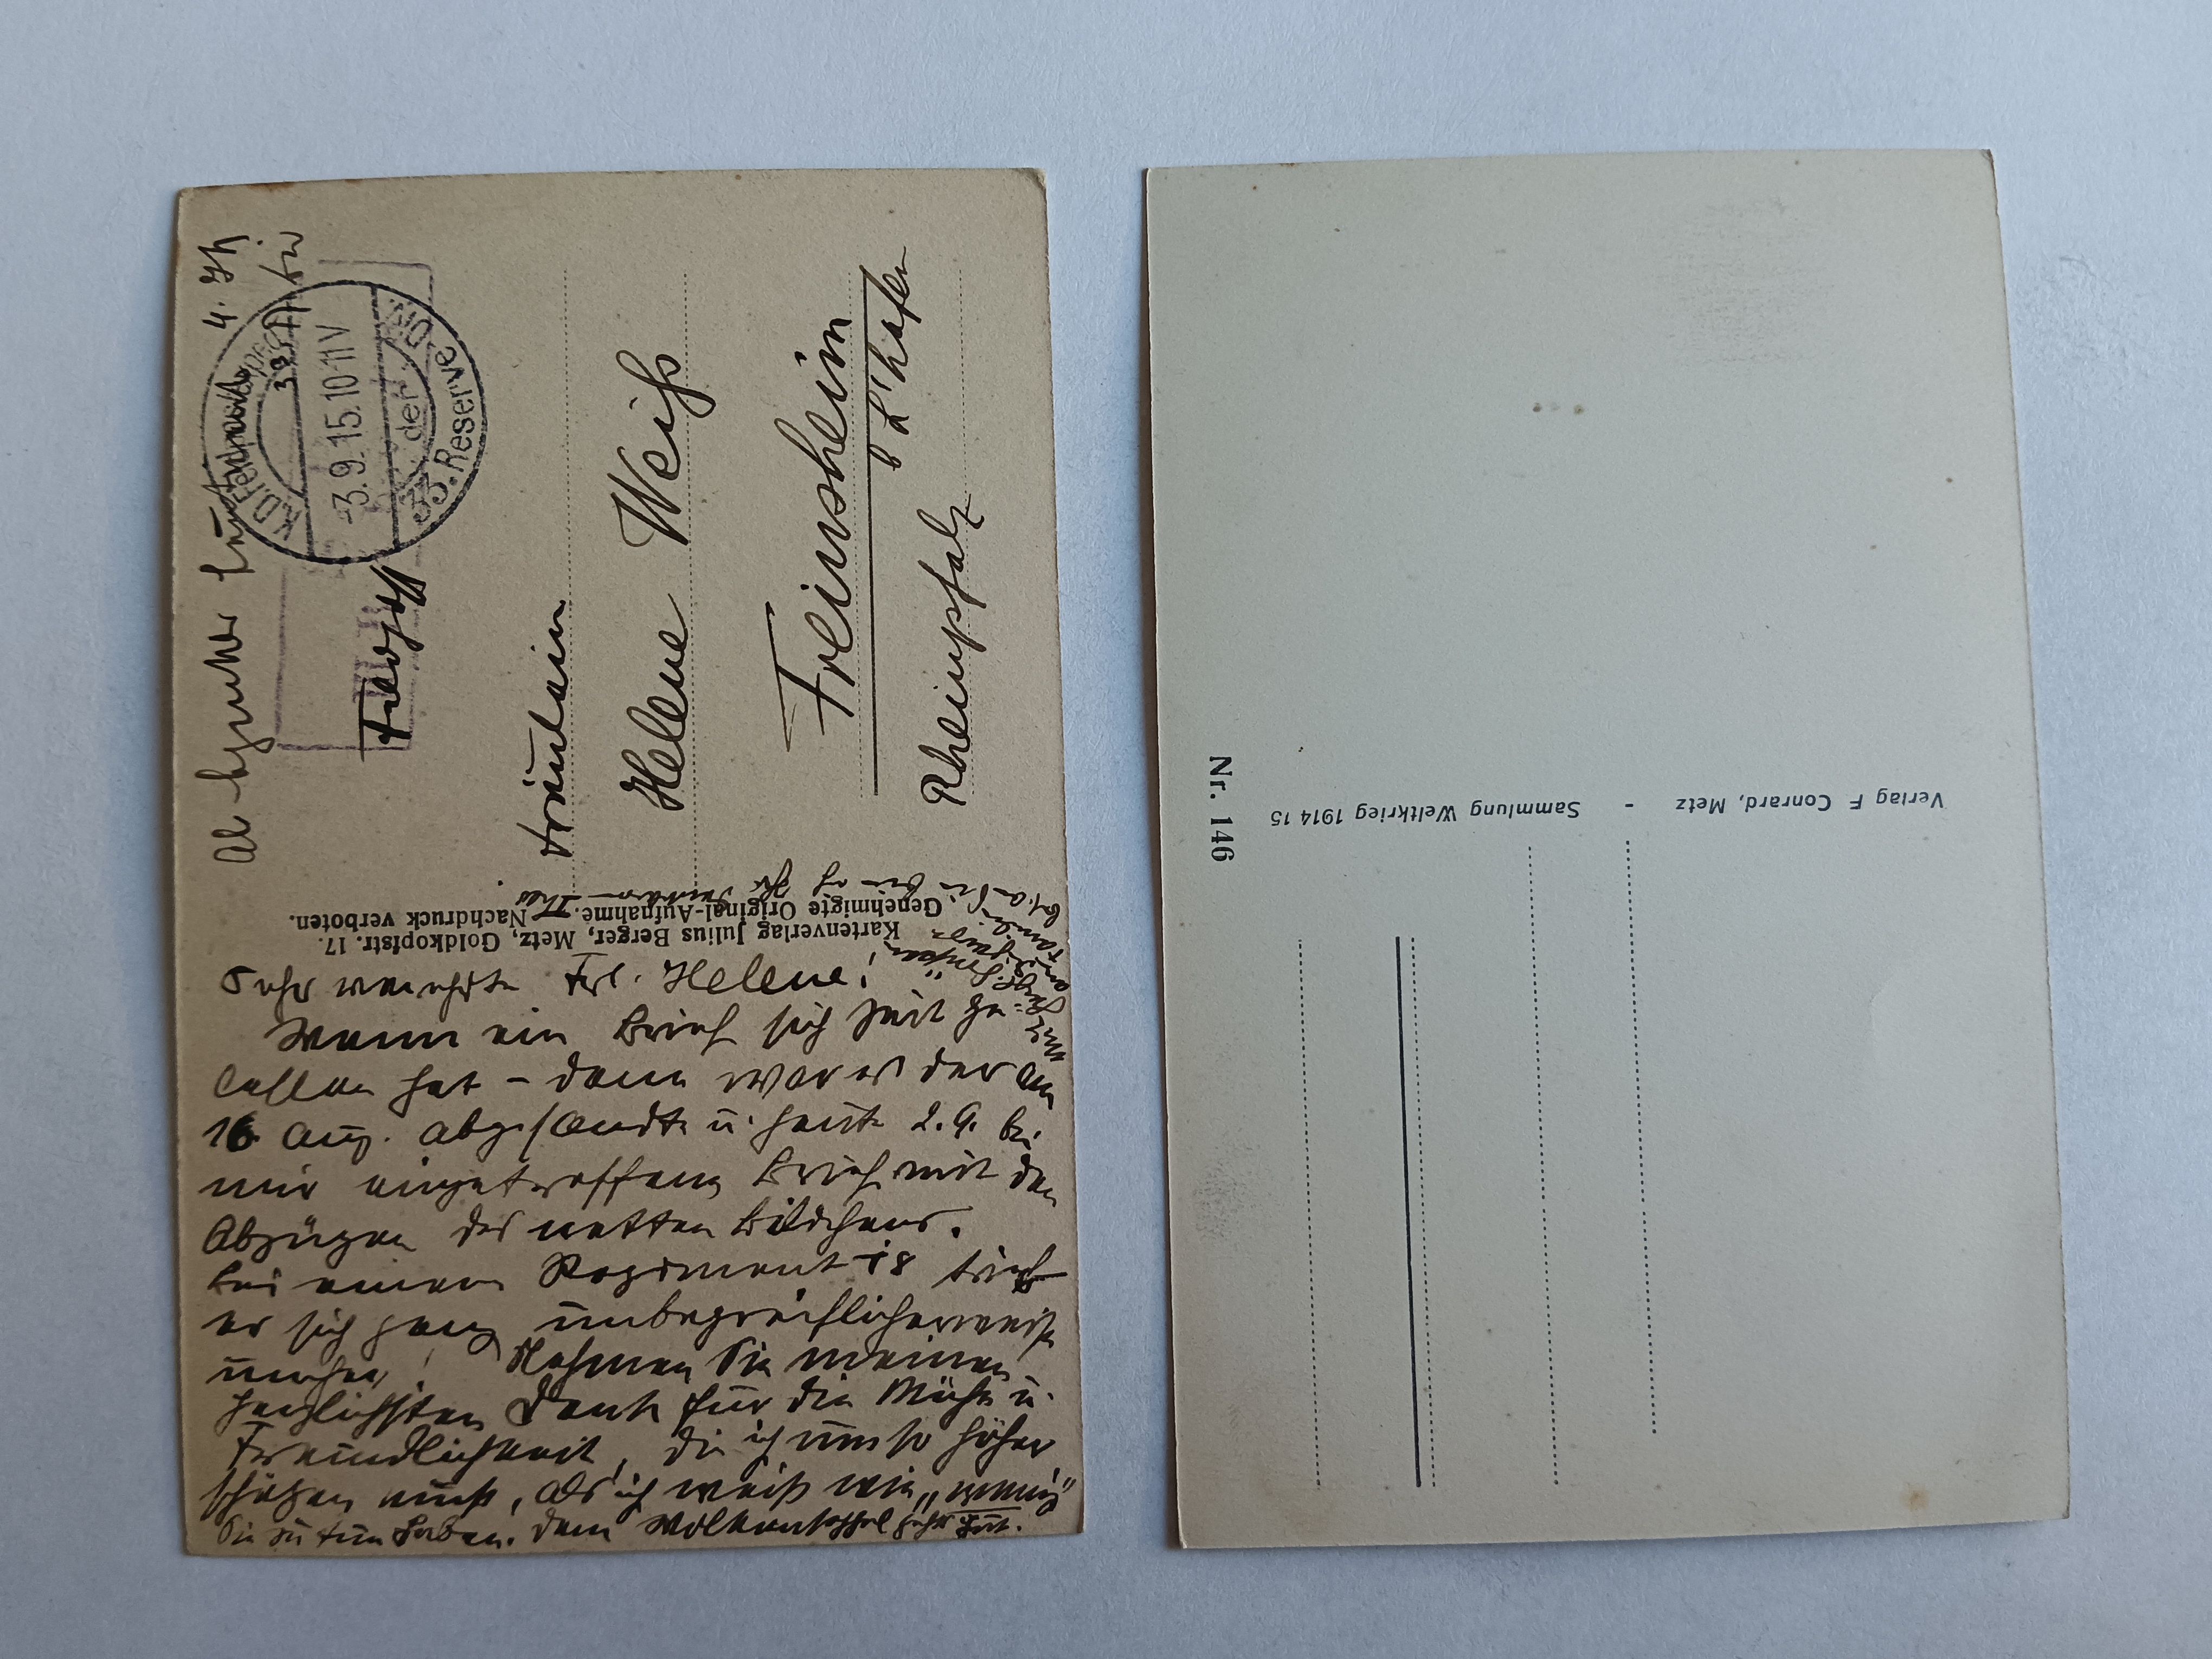 Feldpost
3.9.15.10-11V
der
33. Reserve
Fräulein
Helene Weiß
Freinsheim
b L'hafen
Rheinpfalz
Kartenverlag Julius Berger, Metz, Goldkopfstr. 17.
Genehmigte Original-Aufnahme. Nachdruck verboten.
Sehr verehrte Frl. Helene!
Wenn ein Brief sich Zeit ge=
lassen hat – dann war es der am
16. Aug. abgesandte u. heute 2.9. bei
mir eingetroffene Brief mit den
Abzügen der netten Bildchens.
Bei einem Regiment 18 trieb
er sich ganz unbegreiflicherweise
umher! Nehmen Sie meinen
herzlichsten Dank für die Mühe u.
Freundlichkeit, die ich umso höher
schätzen muß, als ich weiß wie „wenig"
Sie zu tun haben. Dem
Nr. 146
Verlag F Conrard, Metz - Sammlung Weltkrieg 1914 15